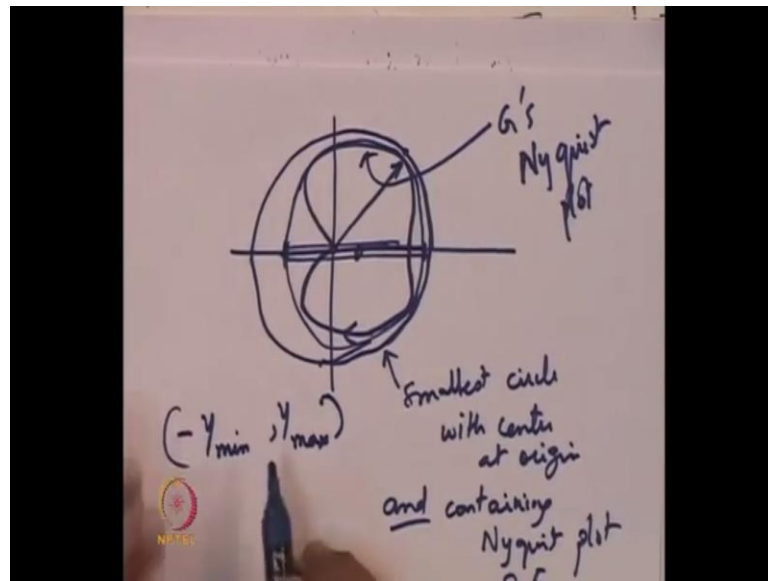 G's
Nyquist
plot
Smallest circle
with center
at origin
and containing
Nyquist plot
(-γmin , γmax)
NPTEL